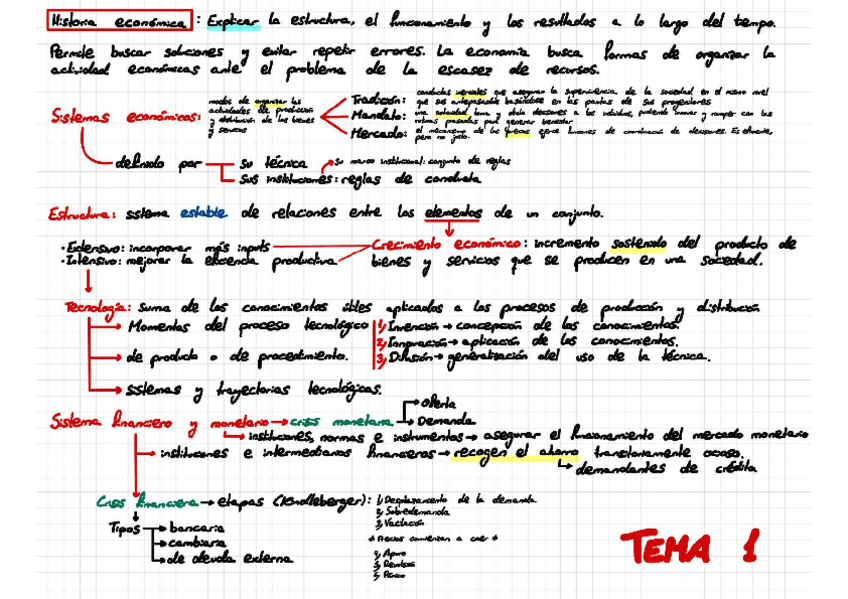 Historia económica: Explicar la estructura, el funcionamiento y los resultados a lo largo del tiempo.
Permite buscar soluciones y evitar repetir errores. La economía busca formas de organizar la
actividad económicas ante el problema de la escasez de recursos.
Sistemas económicos: modos de organizar las
actividades de producción
y distribución de los bienes
y servicios
Tradición: conductas que aseguran la supervivencia de la sociedad en el mismo nivel
que sus antepasados basándose en las pautas de sus progenitores
Mandato: una autoridad toma y obliga decisiones a los individuos, pudiendo innovar y romper con las
rutinas pasadas por generar bienestar
Mercado: el mecanismo de los precios ejerce funciones de coordinación de decisiones. Es eficiente,
pero no justo.
definido por
su técnica
su marco institucional: conjunto de reglas
sus instituciones: reglas de conducta
Estructura: sistema estable de relaciones entre los elementos de un conjunto.
· Extensivo: incorporar más inputs
· Intensivo: mejorar la eficiencia productiva
Crecimiento económico: incremento sostenido del producto de
bienes y servicios que se producen en una sociedad.
Tecnología: suma de los conocimientos útiles aplicados a los procesos de producción y distribución
Momentos del proceso tecnológico
1) Invención → concepción de los conocimientos.
2) Innovación → aplicación de los conocimientos.
3) Difusión → generalización del uso de la técnica.
de producto o de procedimiento.
sistemas y trayectorias tecnológicas.
Sistema financiero y monetario → crisis monetaria
Oferta
Demanda
instituciones, normas e instrumentos → asegurar el funcionamiento del mercado monetario
instituciones e intermediarios financieros → recogen el ahorro transitoriamente ocioso.
demandantes de crédito
Crisis financiera → etapas (Kindleberger):
1) Desplazamiento de la demanda
2) Sobredemanda
3) Vacilación
* Precios comienzan a caer *
4) Apuro
5) Revulsión
6) Pánico
Tipos
bancaria
cambiaria
de deuda externa
TEMA 1